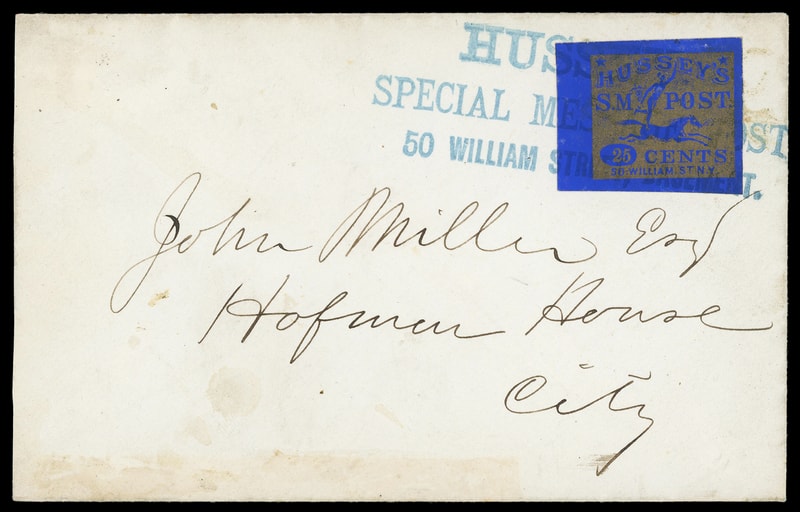 HUSS
SPECIAL MES OST
50 WILLIAM STR BASEMENT.
HUSSEY'S
S.M. POST.
25 CENTS
50 WILLIAM. ST. N.Y.
John Miller Esq
Hofman House
City